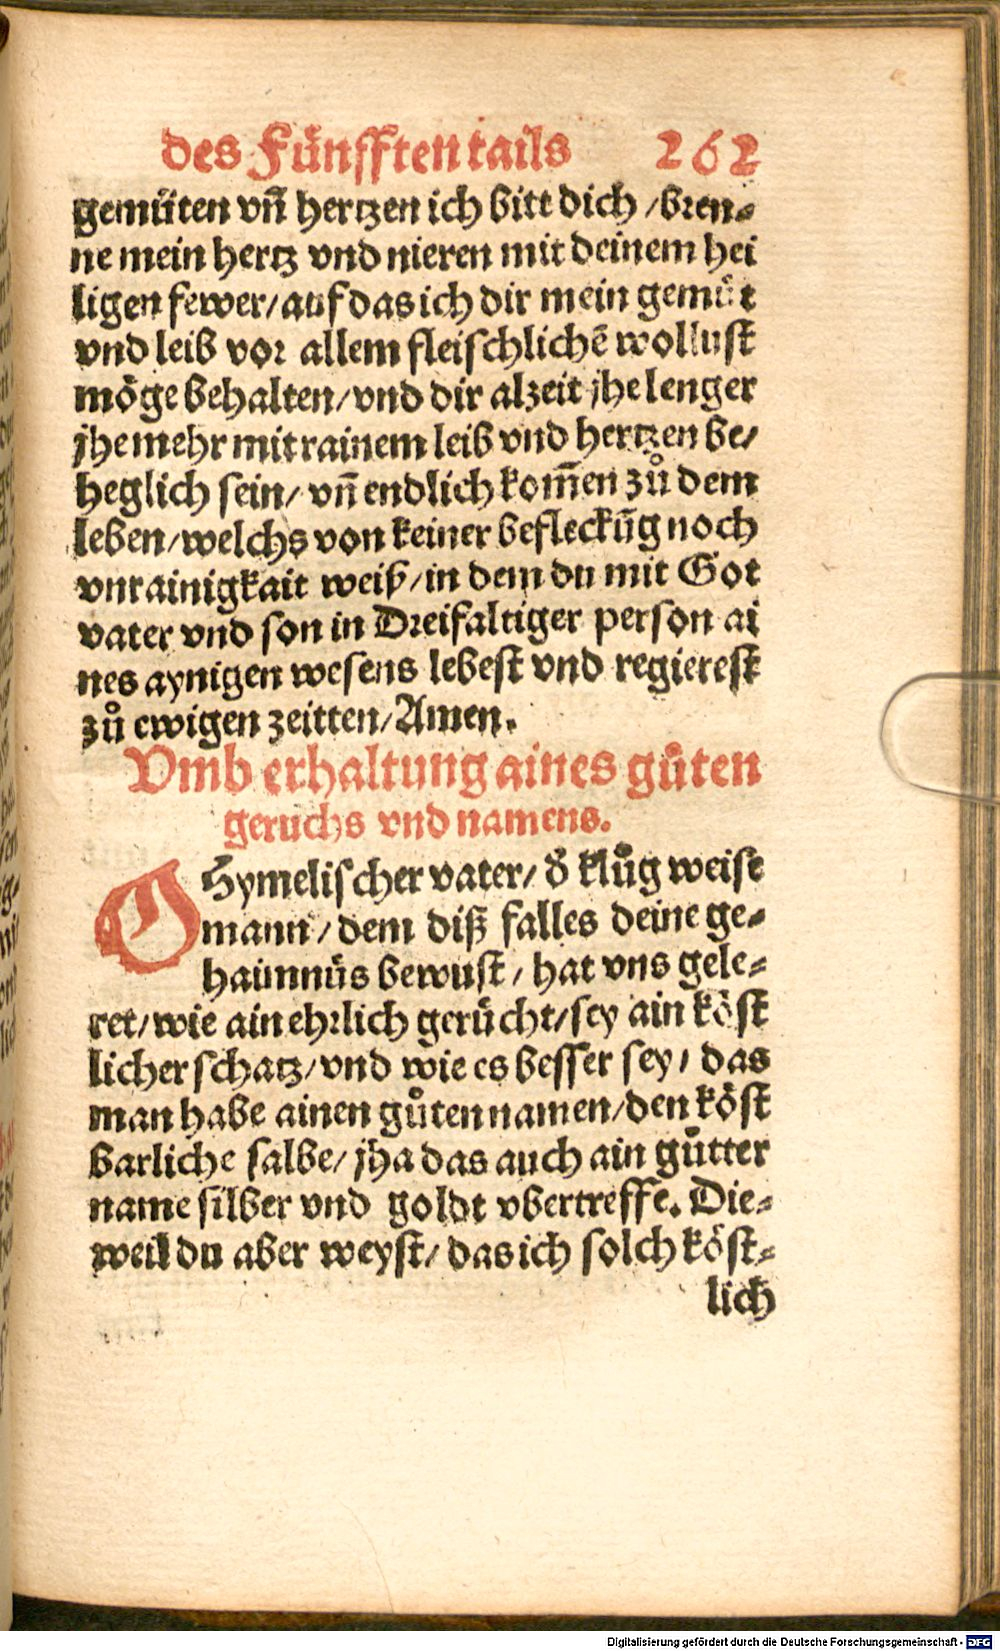 des Fünfften tails 262
gemüten vnñ hertzen ich bitt dich / bren⸗
ne mein hertz vnd nieren mit deinem hei
ligen fewer/ auf das ich dir mein gemüt
vnd leib vor allem fleischlichē wollust
möge behalten/ vnd dir alzeit jhe lenger
jhe mehr mit rainem leib vnd hertzen be/
heglich sein/ vnñ endlich kom̃en zů dem
leben/ welchs von keiner befleckūg noch
vnrainigkait weiß/ in dem du mit Got
vater vnd son in Dreifaltiger person ai
nes aynigen wesens lebest vnd regierest
zů ewigen zeitten/ Amen.
Vmb erhaltung aines gůten
geruchs vnd namens.
O Hymelischer vater/ d̄ klůg weise
mann / dem diß falles deine ge⸗
haimnüs bewust / hat vns gele⸗
ret/ wie ain ehrlich gerücht/ sey ain köst
licher schatz/ vnd wie es besser sey / das
man habe ainen gůten namen/ den köst
barliche salbe/ jha das auch ain gůtter
name silber vnd goldt vbertreffe. Die⸗
weil du aber weyst/ das ich solch köst⸗
lich
Digitalisierung gefördert durch die Deutsche Forschungsgemeinschaft - DFG